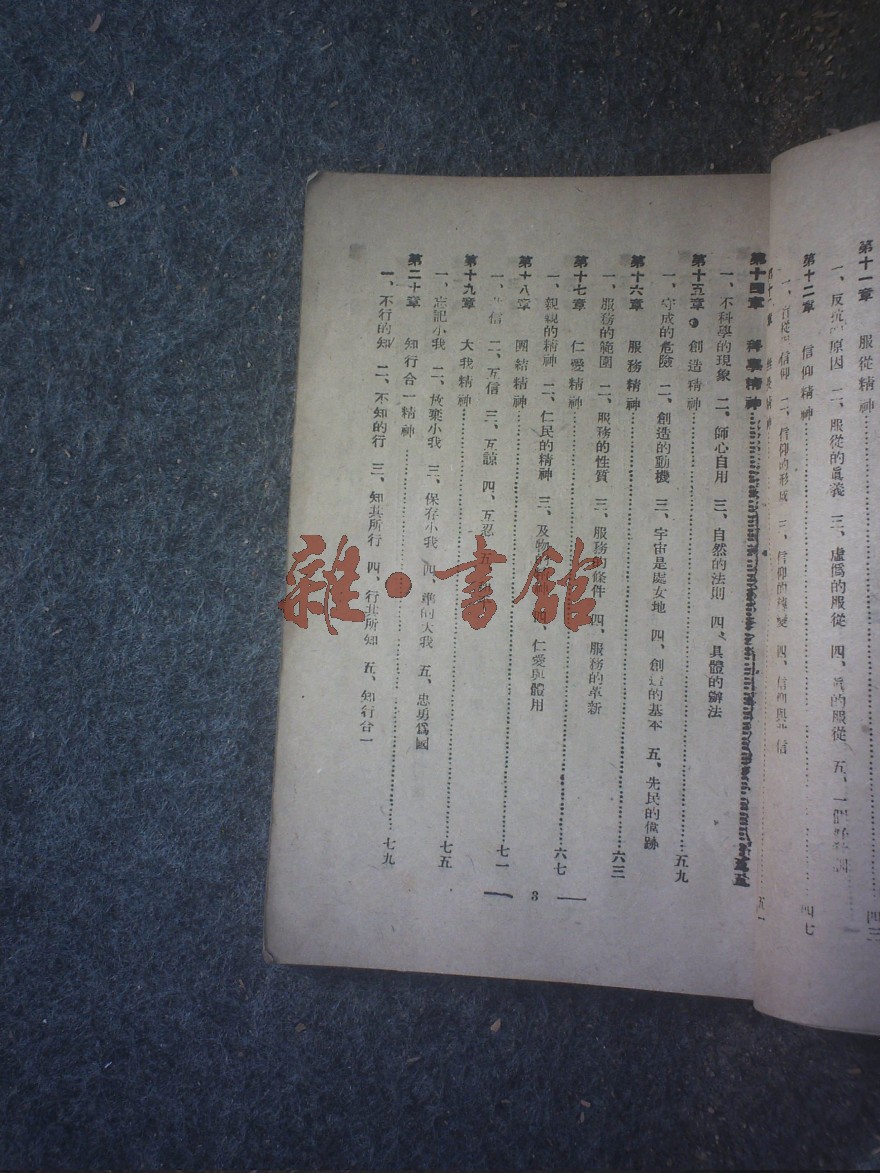 第十一章 服從精神 四三
一、反抗的原因 二、服從的眞義 三、虛僞的服從 四、眞的服從 五、一個
第十二章 信仰精神 四七
信仰 二、信仰的形成 三、信仰的轉變 四、信仰與 信
五一
第十四章 科學精神 五五
一、不科學的現象 二、師心自用 三、自然的法則 四、具體的辦法
第十五章 創造精神 五九
一、守成的危險 二、創造的動機 三、宇宙是處女地 四、創造的基本 五、先民的偉跡
第十六章 服務精神 六三
一、服務的範圍 二、服務的性質 三、服務的條件 四、服務的革新
第十七章 仁愛精神 六七
一、親親的精神 二、仁民的精神 三、及物的 四、仁愛與體用
第十八章 團結精神 七一
一、 信 二、互信 三、互諒 四、互忍 五、
第十九章 大我精神 七五
一、忘記小我 二、放棄小我 三、保存小我 四、準的大我 五、忠勇爲國
第二十章 知行合一精神 七九
一、不行的知 二、不知的行 三、知其所行 四、行其所知 五、知行合一
3
雜·書館